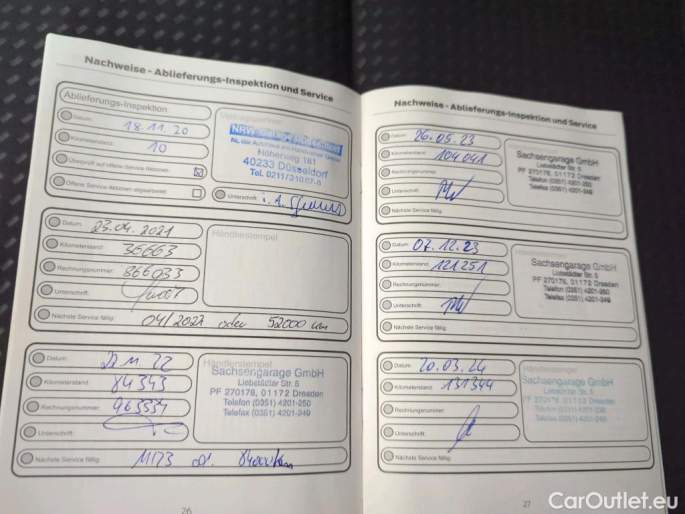 Nachweise - Ablieferungs-Inspektion und Service
Ablieferungs-Inspektion
Datum: 18.11.20
Kilometerstand: 10
Überprüft auf offene Service-Aktionen:
Offene Service-Aktionen abgearbeitet:
Unterschrift: i.A.
NRW
Höherweg 181
40233 Düsseldorf
Datum: 23.04.2021
Kilometerstand: 36663
Rechnungsnummer: 866033
Unterschrift:
Nächste Service fällig: 04/2023 oder 52000 km
Händlerstempel
Datum:
Kilometerstand: 84343
Rechnungsnummer:
Unterschrift:
Nächste Service fällig:
Sachsengarage GmbH
Liebstädter Str. 5
PF 270178, 01172 Dresden
Telefon (0351) 4201-250
Telefax (0351) 4201-249
26
Nachweise - Ablieferungs-Inspektion und Service
Datum: 26.05.23
Kilometerstand: 104041
Rechnungsnummer:
Unterschrift:
Nächste Service fällig:
Sachsengarage GmbH
Liebstädter Str. 5
PF 270178, 01172 Dresden
Telefon (0351) 4201-250
Telefax (0351) 4201-249
Datum: 07.12.23
Kilometerstand: 121251
Rechnungsnummer:
Unterschrift:
Nächste Service fällig:
Sachsengarage GmbH
Liebstädter Str. 5
PF 270178, 01172 Dresden
Telefon (0351) 4201-250
Telefax (0351) 4201-249
Datum: 20.03.24
Kilometerstand: 131344
Rechnungsnummer:
Unterschrift:
Nächste Service fällig:
Sachsengarage GmbH
Liebstädter Str. 5
PF 270178, 01172 Dresden
27
CarOutlet.eu